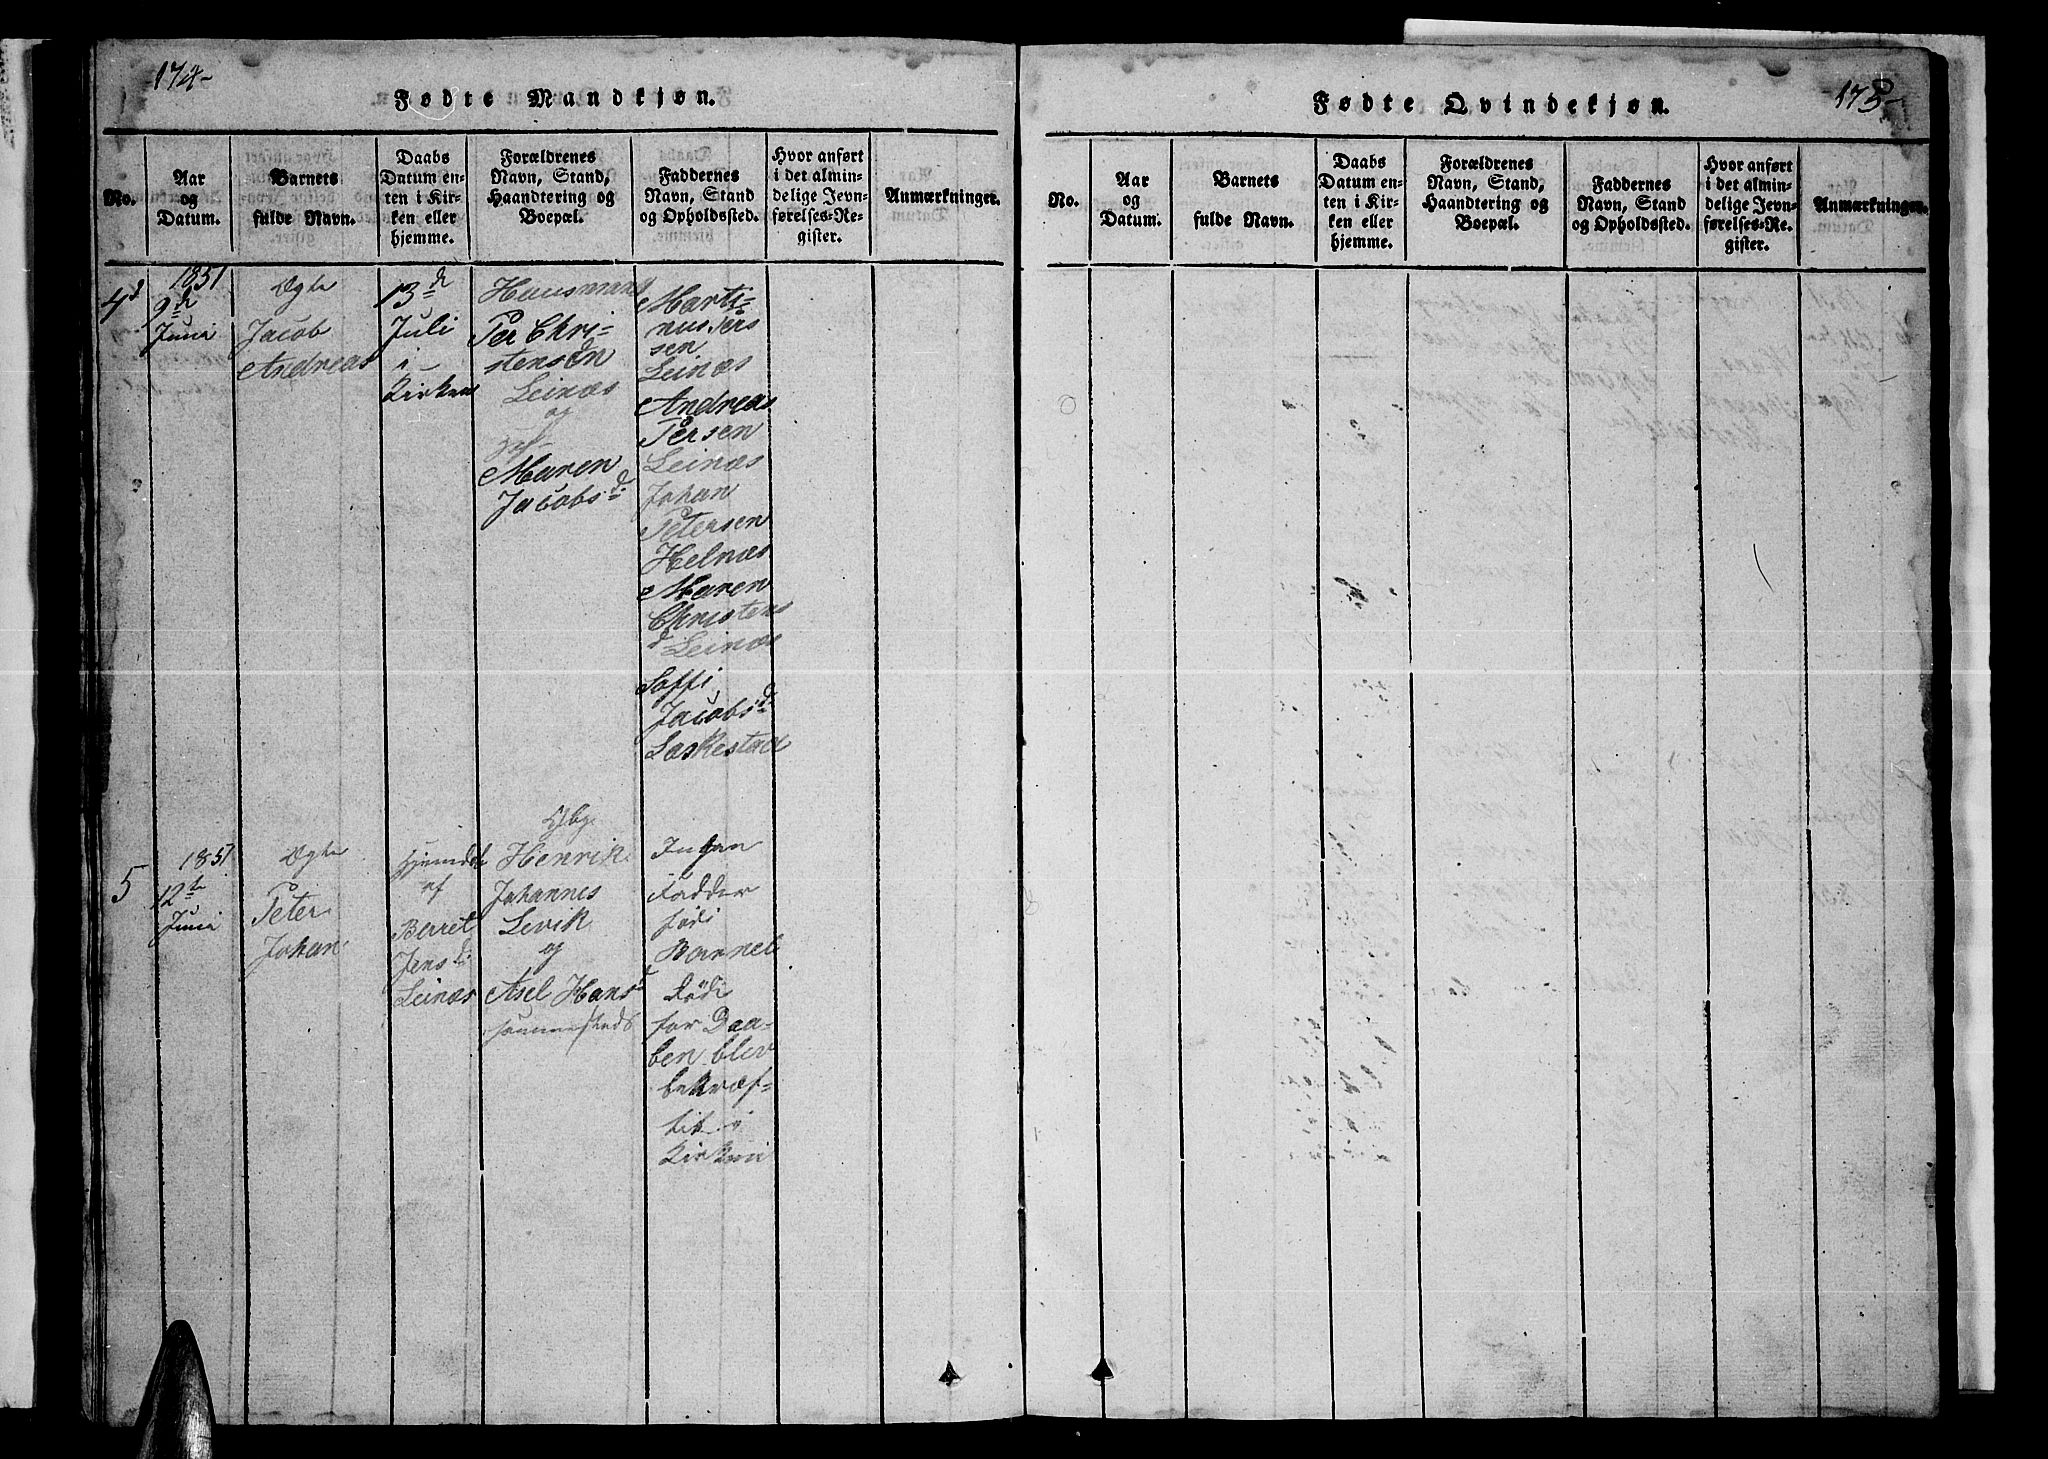 174-
Fødte Mandkjøn.
No.
Aar
og
Datum.
Barnets
fulde Navn.
Daabs
Datum en-
ten i Kir-
ken eller
hjemme.
Forældrenes
Navn, Stand,
Haandtering og
Boepæl.
Faddernes
Navn, Stand
og Opholdssted.
Hvor anført
i det almin-
delige Jevn-
førelses-Re-
gister.
Anmærkninger.
4
1851
9de
Juni
Ægte
Jacob
Andreas
13de
Juli
i
Kirken
Huusmand
Per Chri-
stensen
Leinæs
og
Maren
Jacobsd.
Marti-
nus Pers
sen
Leinæs
Andreas
Persen
Leinæs
Johan
Petersen
Helnæs
Maren
Christens
d Leinæs
Soffi
Jacobsd
Laskestad
5
1851
12te
Juni
Ægte
Peter
Johan
Hjemdøbt
af
Berret
Jensd:
Leinæs
Henrik
Johannes
Levik
og
Asel Hansd
Ingen
Fadder
fødi
Barnet
Døde
før Daa-
ben blev
bekræf-
tet i
Kirken
175-
Fødte Qvindekjøn.
No.
Aar
og
Datum.
Barnets
fulde Navn.
Daabs
Datum en-
ten i Kir-
ken eller
hjemme.
Forældrenes
Navn, Stand,
Haandtering og
Boepæl.
Faddernes
Navn, Stand
og Opholdssted.
Hvor anført
i det almin-
delige Jevn-
førelses-Re-
gister.
Anmærkninger.